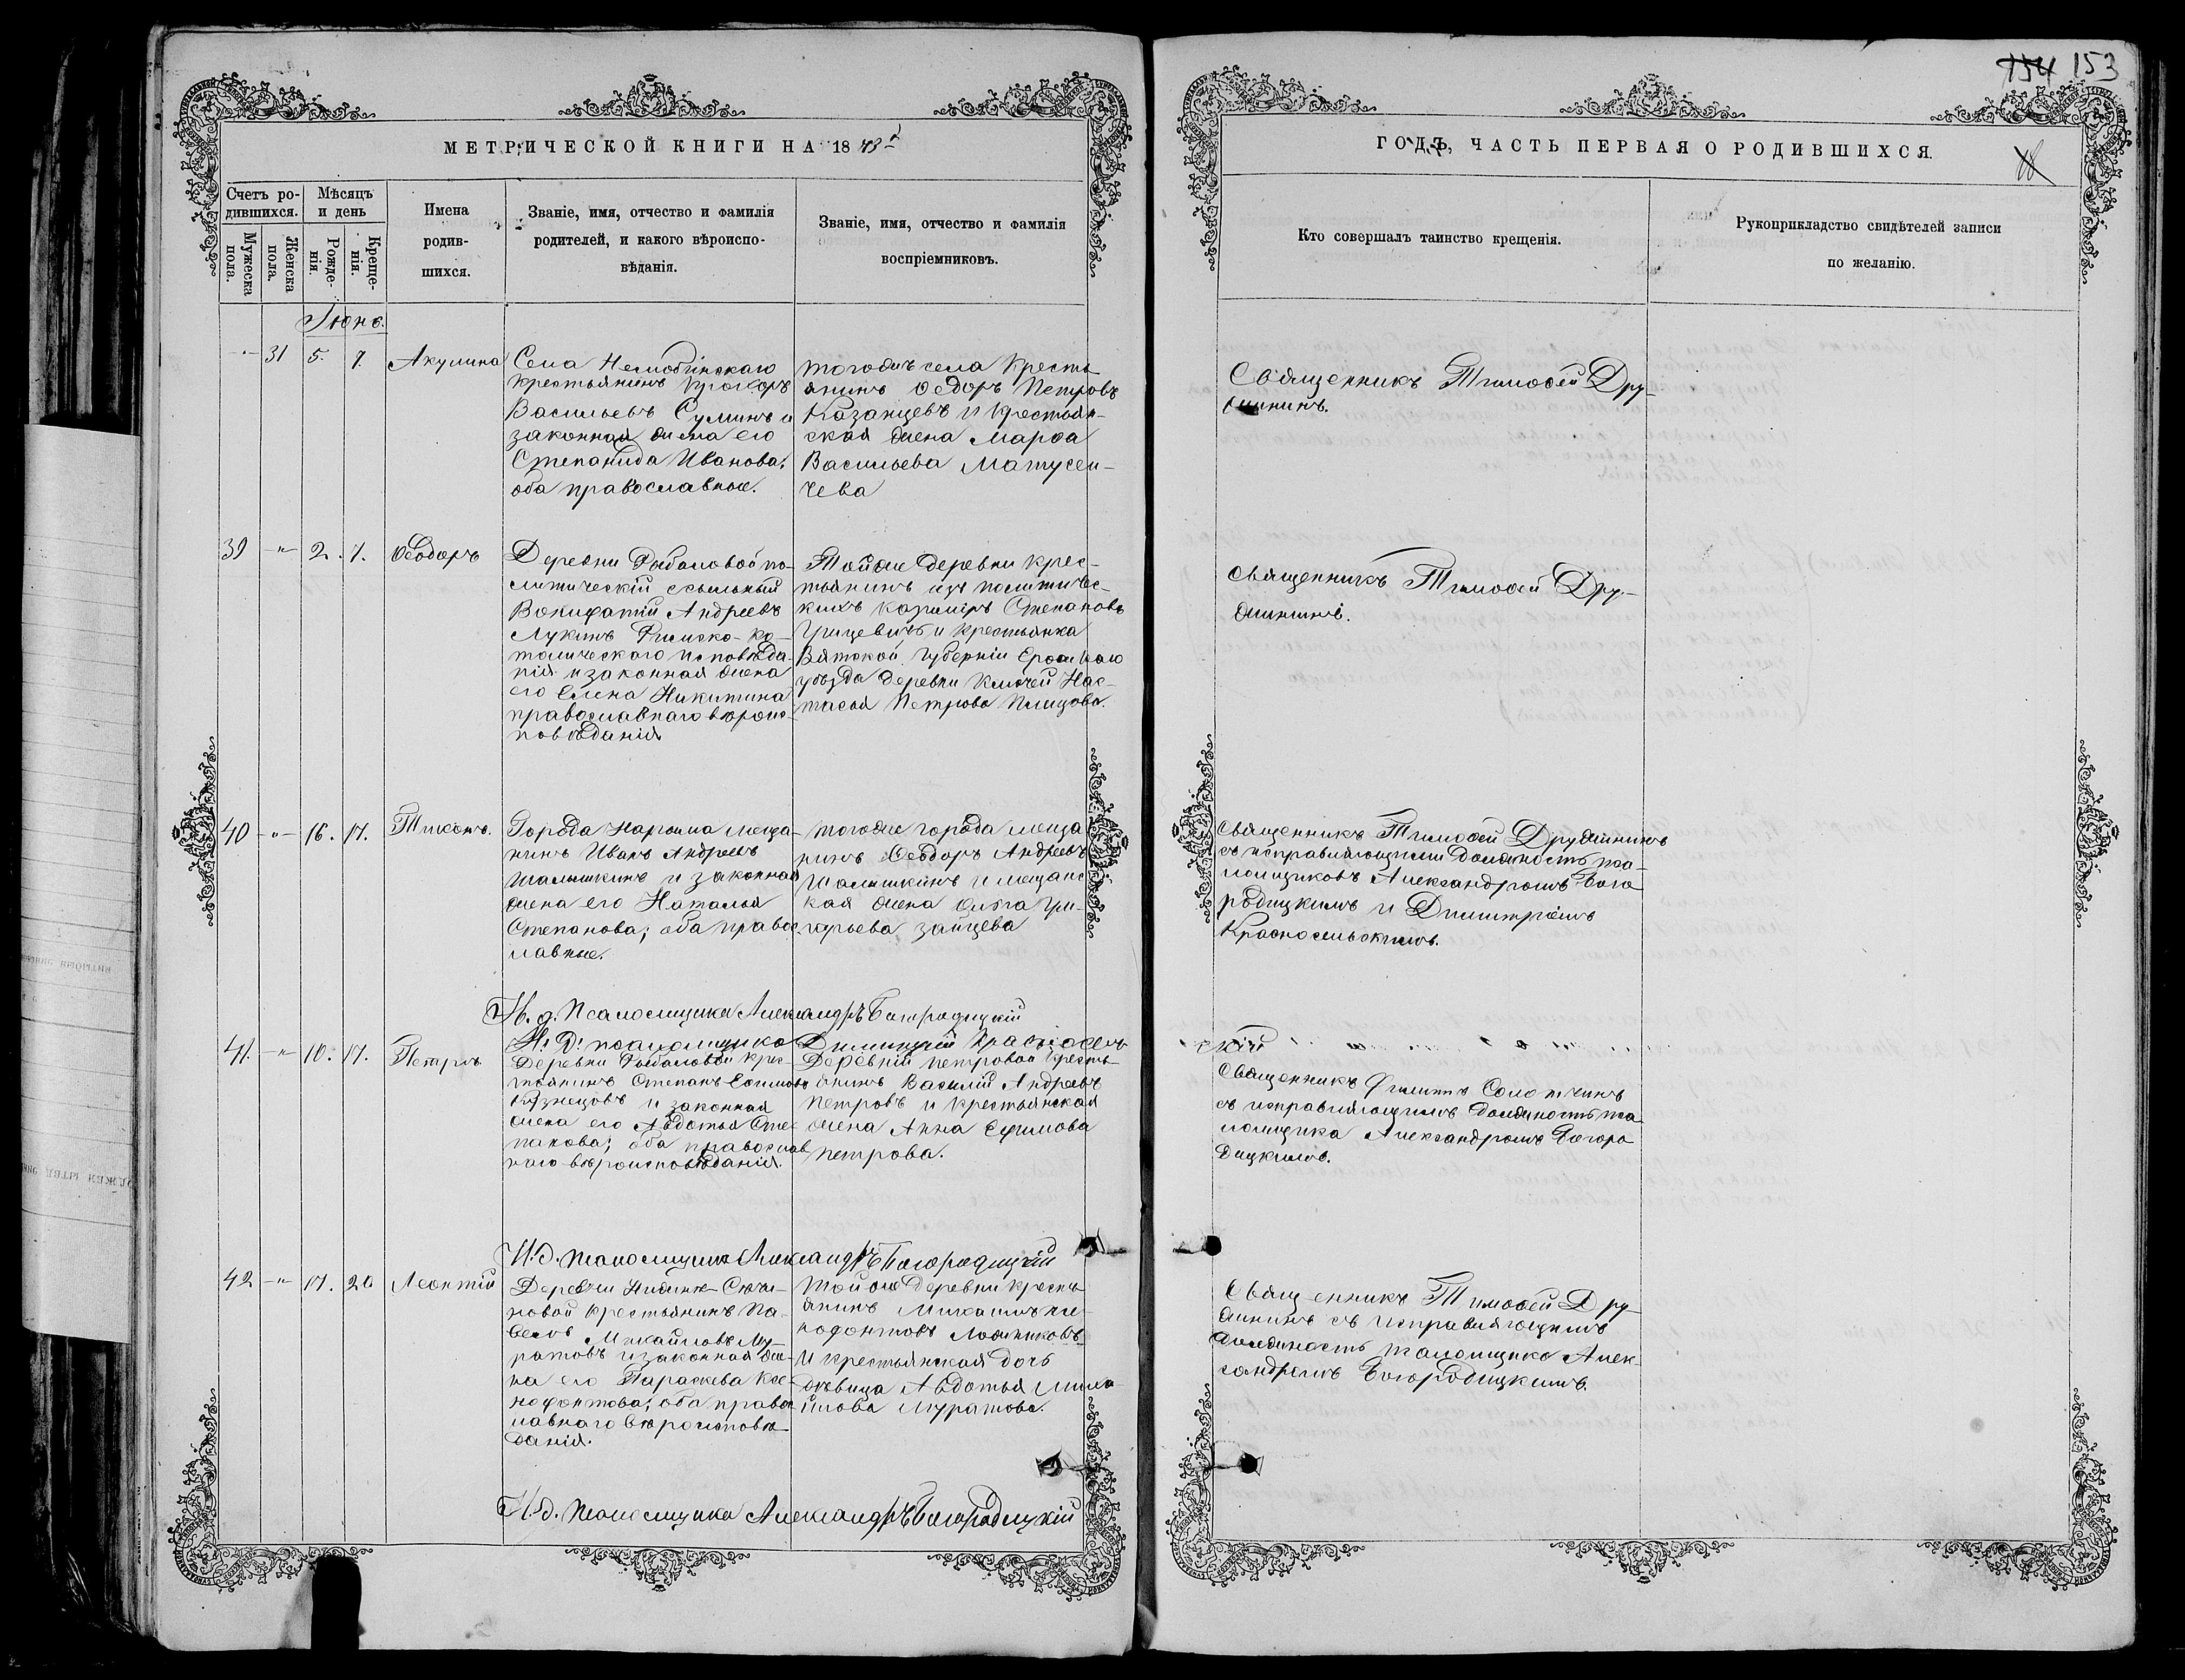 154 153
МЕТРИЧЕСКОЙ КНИГИ НА 18
ГОДЪ, ЧАСТЬ ПЕРВАЯ О РОДИВШИХСЯ.
Счетъ ро-
дившихся.
Мужеска
пола.
Женска
пола.
Мѣсяцъ
и день
Рожде-
нія.
Креще-
нія.
Имена
родив-
шихся.
Званіе, имя, отчество и фамилія
родителей, и какого вѣроиспо-
вѣданія.
Званіе, имя, отчество и фамилія
воспріемниковъ.
Кто совершалъ таинство крещенія.
Рукоприкладство свидѣтелей записи
по желанію.
Іюнь.
-"- 31 5. 7. Акулина
Села
крестьянинъ Прохоръ
Васильевъ Суминъ и
законная жена его
Степанида Иванова,
оба православные.
тогожъ села кресть
янинъ Ѳедоръ Петровъ
Казанцевъ и крестьян-
ская жена Марѳа
Васильева Матусеи-
чева
Священникъ Тимоѳей Дру-
жининъ.
39 -"- 2. 7. Ѳеодоръ
Деревни Рыбаловой по-
литическій ссыльный
Вонифатій Андреевъ
Лукинъ Римско-ка-
толическаго исповѣда-
нія и законная жена
его Елена Никитина
православнаго вѣроис-
повѣданія
Тойже деревни крес-
тьянинъ изъ политичес-
кихъ Казиміръ Степановъ
Грицевичъ и крестьянка
Вятской губерніи
уѣзда деревни Ключей Нас-
тасья Петрова
Священникъ Тимоѳей Дру-
жининъ.
40 -"- 16. 17. Тихонъ.
Города Нарыма меща-
нинъ Иванъ Андреевъ
Шалышкинъ и законная
жена его Наталья
Степанова; оба правос
лавные.
тогоже города меща
нинъ Ѳеодоръ Андреевъ
Шалышкинъ и мещанс
кая жена Ольга Гри-
горьева Зайцева
Священникъ Тимоѳей Дружининъ
съ исправляющими должность пса-
ломщиковъ Александромъ Бого
родицкимъ и Димитріемъ
Красносельскимъ.
И. д. Псаломщика Александръ Богородицкій
И. д. псаломщика Димитрій Красносель
скій
41. -"- 10. 17. Петръ
Деревни Рыбаловой крес-
тьянинъ Степанъ Евѳимовъ
Кузнецовъ и законная
жена его Авдотья Сте-
панова; оба православ
наго вѣроисповѣданія.
Деревни Петровой кресть-
янинъ Василій Андреевъ
Петровъ и крестьянская
жена Анна Ефимова
Петрова.
Священникъ Филиппъ
съ исправляющимъ должность пса
ломщика Александромъ Богоро
дицкимъ.
И. д. псаломщика Александръ Богородицкій
42 -"- 17. 20 Леонтій
Деревни Нижне-Сечи-
новой крестьянинъ Па-
велъ Михайловъ Му-
ратовъ и законная же-
на его Параскева Ксе-
нофонтова; оба правос
лавнаго вѣроисповѣ
данія.
Той же деревни кресть
янинъ Михаилъ Ксе-
нофонтовъ Ложниковъ
и крестьянская дочь
дѣвица Авдотья Миха
йлова Муратова.
Священникъ Тимоѳей Дру-
жининъ съ исправляющимъ
должность псаломщика Алек-
сандромъ Богородицкимъ.
И. д. псаломщика Александръ Богородицкій